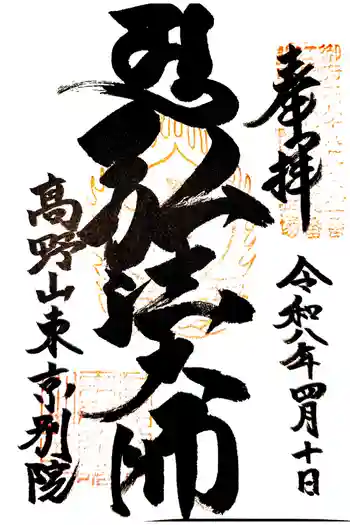 奉拝
令和八年四月十日
弘法大師
高野山東京別院